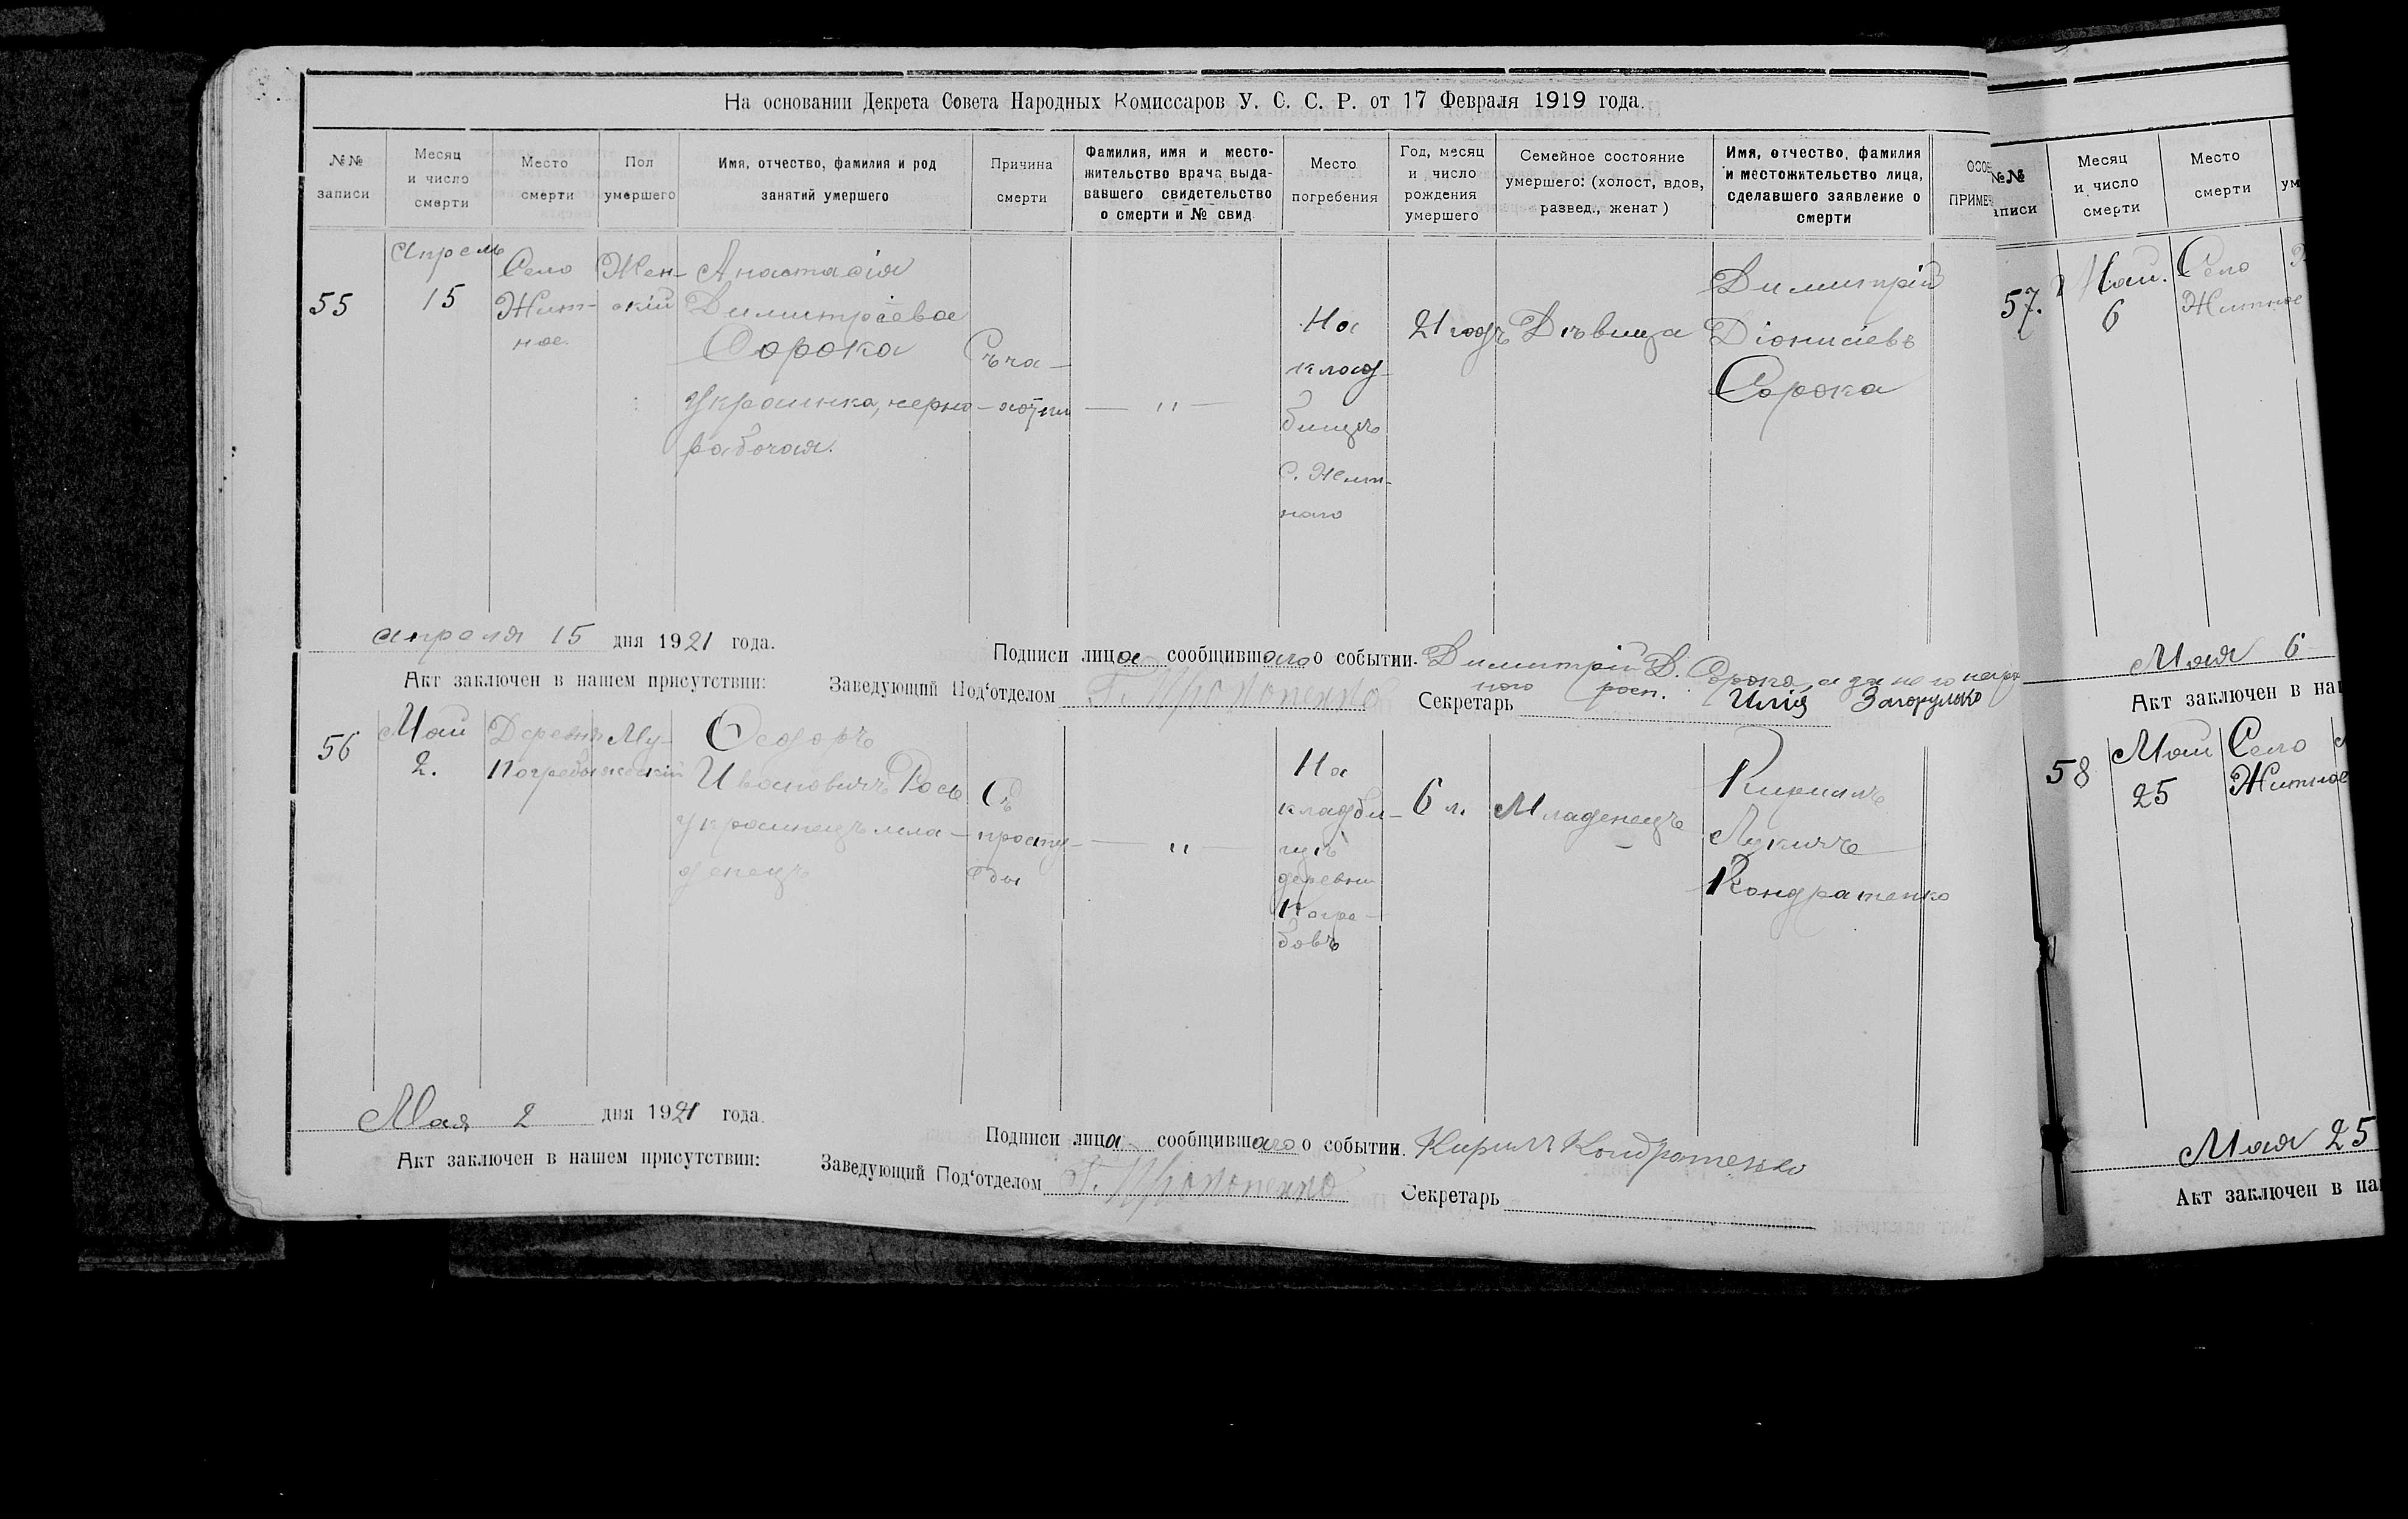 На основании Декрета Совета Народных Комиссаров У. С. С. Р. от 17 Февраля 1919 года.
№№ записи
Месяц и число смерти
Место смерти
Пол умершего
Имя, отчество, фамилия и род занятий умершего
Причина смерти
Фамилия, имя и место-жительство врача выда-вавшего свидетельство о смерти и № свид.
Место погребения
Год, месяц и число рождения умершего
Семейное состояние умершего: (холост, вдов, развед., женат)
Имя, отчество, фамилия и местожительство лица, сделавшего заявление о смерти
ОСОБ
ПРИМЕЧ
55
Апрель
15
Село
Жит-
ное.
Жен-
скій
Анастасія
Димитріевая
Сорока
Украинка, черно-
рабочая.
Съ ча-
хотки
— " —
На
клад-
бищѣ
С. Жит-
наго
21 годъ
Дѣвица
Димитрій
Діонисіевъ
Сорока
апреля 15 дня 1921 года.
Подписи лица сообщившаго о событии. Димитрій Д. Сорока, а за него негра
мого росп. Илія Загорулько
Акт заключен в нашем присутствии: Заведующий Под'отделом Г. Прокопенко Секретарь
56
Май
2.
Деревня
Погребы
Му-
жескій
Феодоръ
Ивановичъ Рось
украинецъ мла-
денецъ
Съ
просту-
ды
— " —
На
кладби-
щѣ
деревни
Погре-
бовъ
6 л.
Младенецъ
Кириллъ
Лукичъ
Кондратенко
Мая 2 дня 1921 года.
Подписи лица сообщившаго о событии. Кирилл Кондратенко
Акт заключен в нашем присутствии: Заведующий Под'отделом Г. Прокопенко Секретарь
№№
аписи
Месяц и число смерти
Место смерти
ум
57.
Май.
6
Село
Житное
Мая 6
Акт заключен в наш
58
Май
25
Село
Житное
Мая 25
Акт заключен в наш